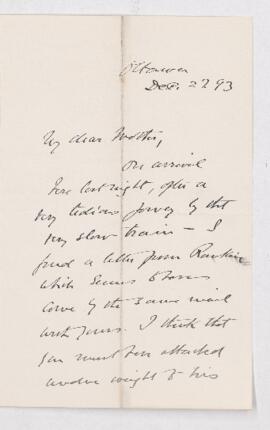 Ottawa
Dec. 27 93
My dear Mother,
On arrival
here last night, after a
very tedious journey by that
very slow train – I
found a letter from Rankine
which seems to have
come by the same mail
with yours. I think that
you must have attached
undue weight to his